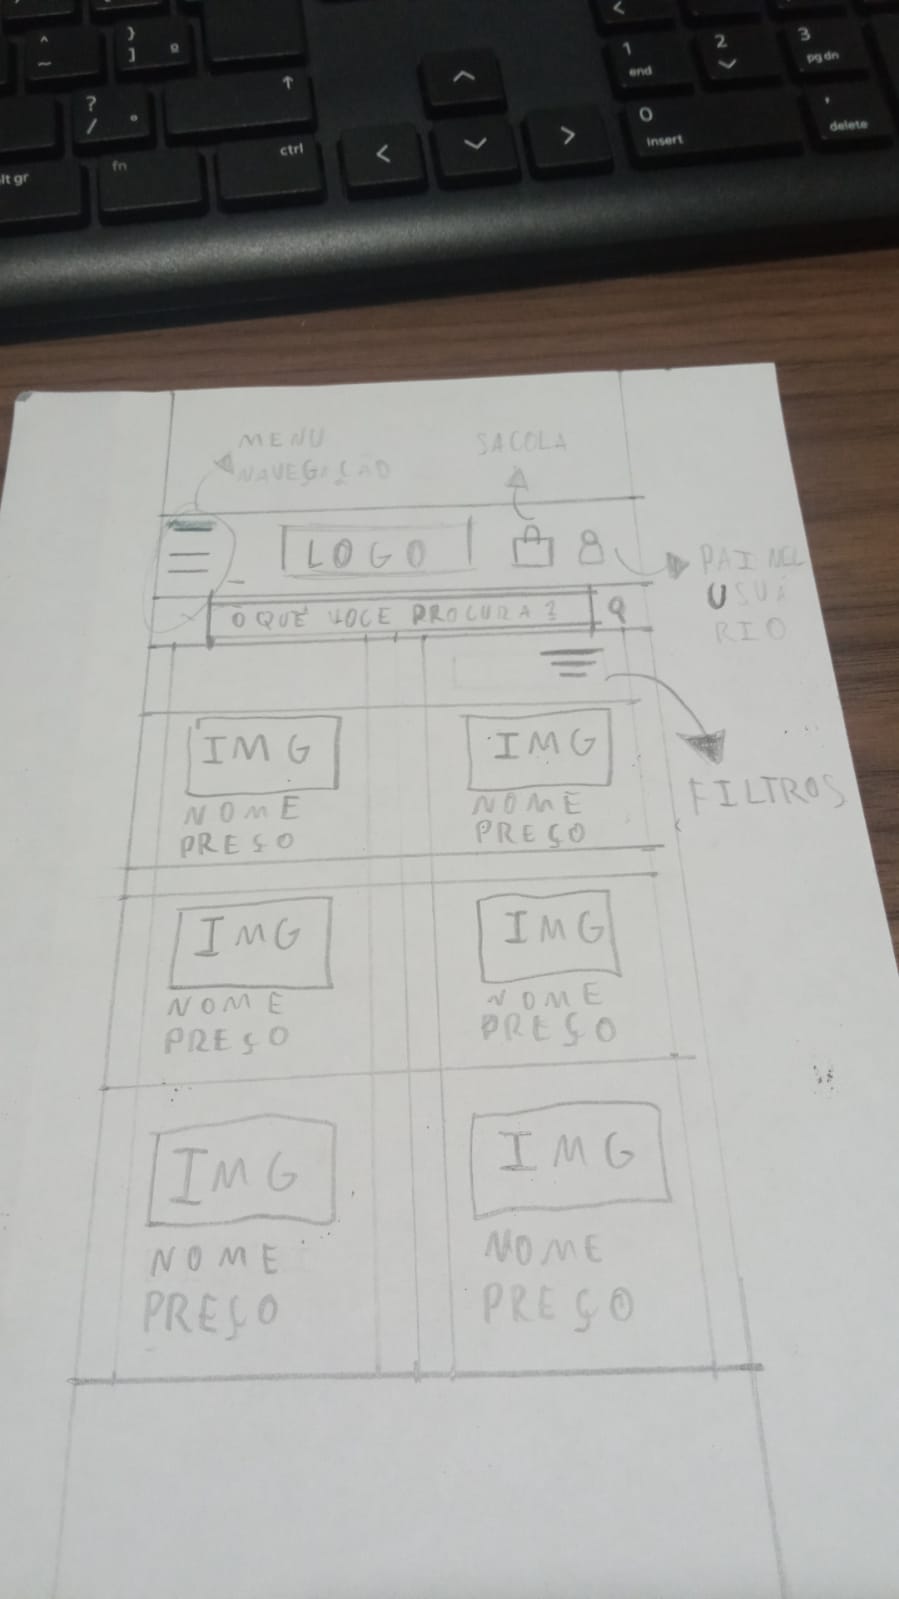 ^
~
}
]
º
?
/
°
lt gr
fn
ctrl
1
end
2
3
pg dn
0
insert
,
delete
MENU
NAVEGAÇÃO
SACOLA
LOGO
PAINEL
USUÁ
RIO
O QUE VOCE PROCURA?
FILTROS
IMG
NOME
PREÇO
IMG
NOME
PREÇO
IMG
NOME
PREÇO
IMG
NOME
PREÇO
IMG
NOME
PREÇO
IMG
NOME
PREÇO